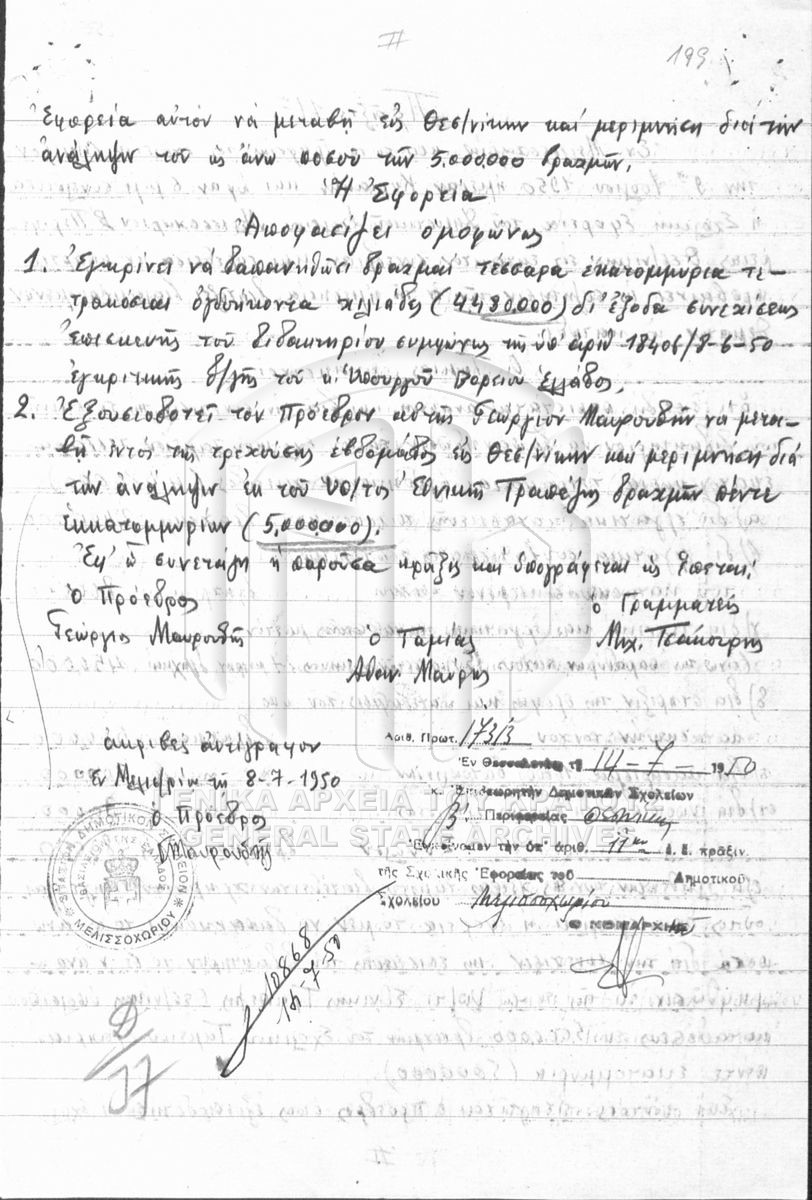 II
199
Ἐφορεία αὐτόν νά μεταβῇ εἰς Θεσ/νίκην καί μεριμνήσῃ διά τήν
ἀνάληψιν τοῦ ὡς ἄνω ποσοῦ τῶν 5.000.000 δραχμῶν.
Ἡ Ἐφορεία
Ἀποφασίζει ὁμοφώνως
1. Ἐγκρίνει νά δαπανηθῶσι δραχμαί τέσσαρα ἑκατομμύρια τε-
τρακόσιαι ὀγδοήκοντα χιλιάδες (4.480.000) δι' ἔξοδα συνεχίσεως
ἐπισκευῆς τοῦ διδακτηρίου συμφώνως τῇ ὑπ' ἀριθ 18406/8-6-50
ἐγκριτικῆς δ/γῆς τοῦ κ. Ὑπουργοῦ Βορείου Ἑλλάδος.
2. Ἐξουσιοδοτεῖ τόν Πρόεδρον αὐτῆς Γεώργιον Μαυρουδῆν νά μετα-
βῇ ἐντός τῆς τρεχούσης ἑβδομάδος εἰς Θεσ/νίκην καί μεριμνήσῃ διά
τήν ἀνάληψιν ἐκ τοῦ Ὑπ/τος Ἐθνικῆς Τραπέζης δραχμῶν πέντε
ἑκκατομμυρίων (5.000.000).
Ἐφ' ᾧ συνετάγη ἡ παροῦσα πρᾶξις καί ὑπογράφεται ὡς ἕπεται.
Ὁ Πρόεδρος
ὁ Γραμματεύς
Γεώργιος Μαυρουδῆς
ὁ Ταμίας
Μιχ. Τσακίρης
Ἀθαν. Μαύρος
Ἀριθ. Πρωτ. 173β
ἀκριβές ἀντίγραφον
Ἐν Θεσσαλονίκῃ τῇ 14-7-1950
ἐν Μελισ/ρίῳ τῇ 8-7-1950
Ὁ Πρόεδρος
Γ Μαυρουδῆς
Ἐπιθεωρητήν Δημοτικῶν Σχολείων
β' Περιφερείας Θεσ/νίκης
Ἐγκρίνομεν τήν ὑπ' ἀριθ. 11ην ἐ. ἐ. πρᾶξιν
τῆς Σχολικῆς Ἐφορείας τοῦ Δημοτικοῦ
Σχολείου Μελισσοχωρίου
Ο ΝΟΜΑΡΧΗΣ
ΓΕΝΙΚΑ ΑΡΧΕΙΑ ΤΟΥ ΚΡΑΤΟΥΣ
GENERAL STATE ARCHIVES
ΔΗΜΟΤΙΚΟΝ ΣΧΟΛΕΙΟΝ
ΜΕΛΙΣΣΟΧΩΡΙΟΥ
ΒΑΣΙΛΕΙΟΝ ΤΗΣ ΕΛΛΑΔΟΣ
10868
14-7-50